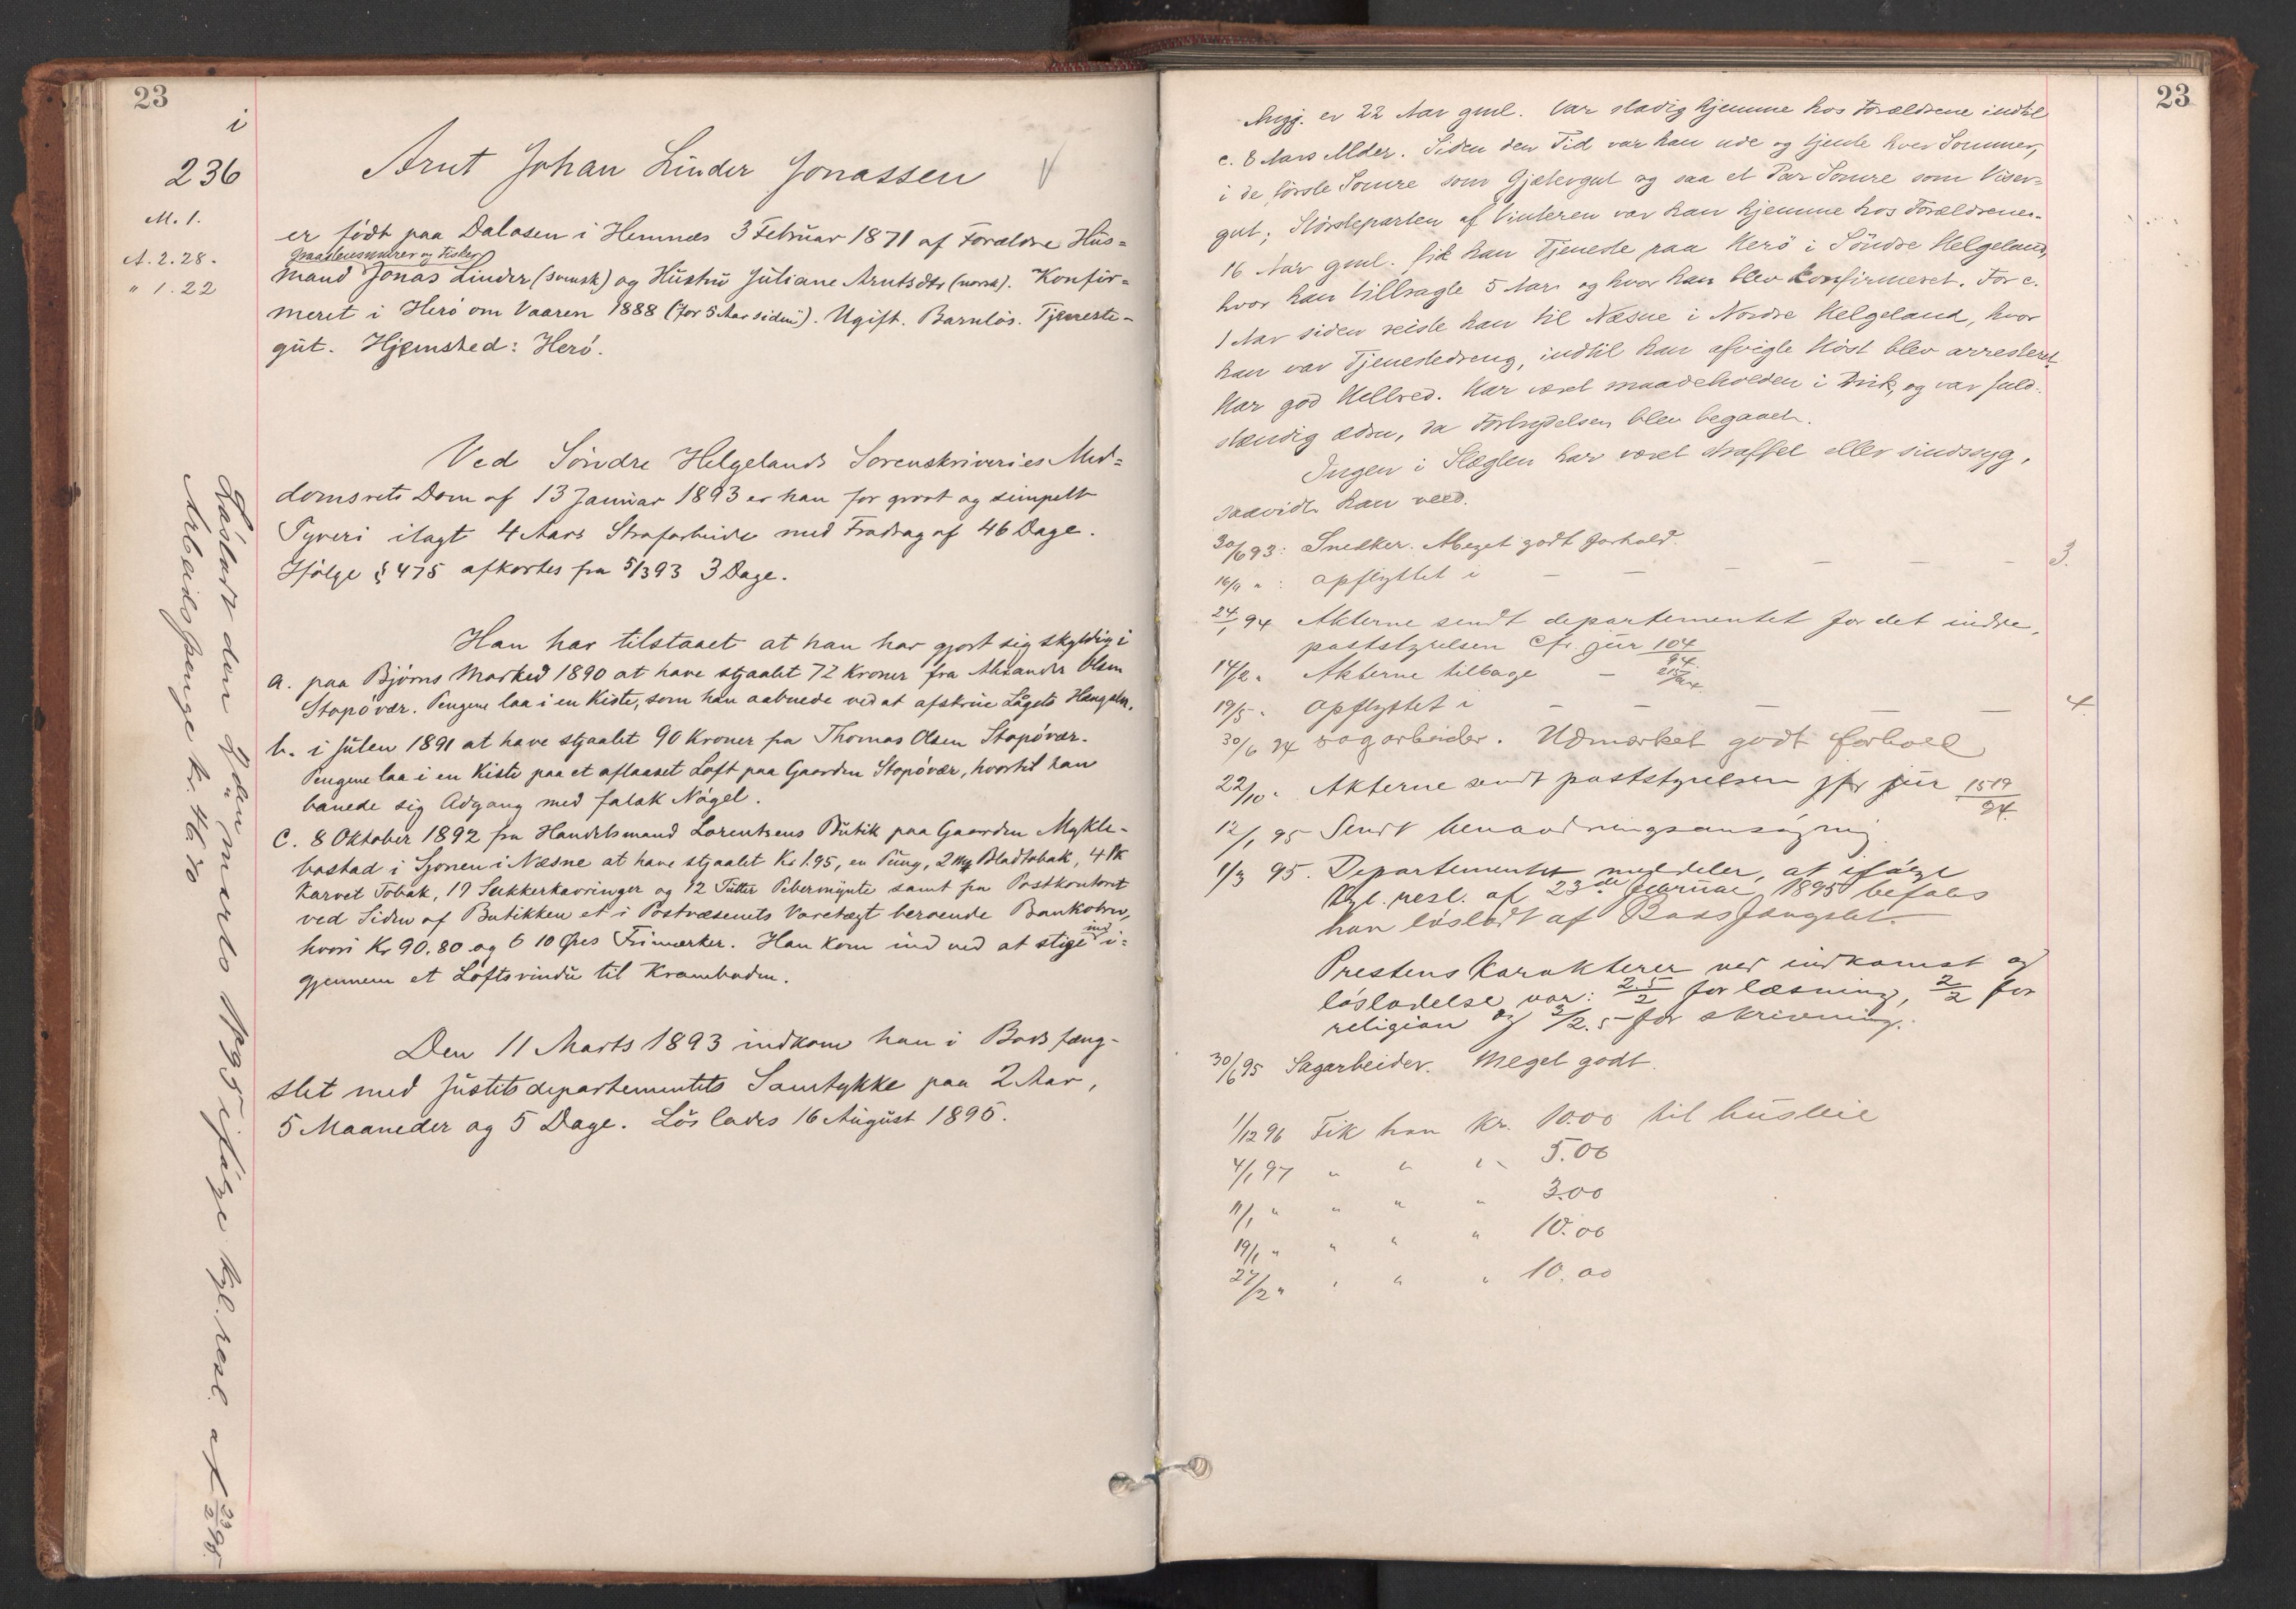 23
i
236
M. 1.
A. 2. 28.
" 1. 22
Arnt Johan Linder Jonassen
er født paa Dalosen i Hemnæs 3 Februar 1871 af Forældre Hus=
Graastensmurer og Fisker
mand Jonas Linder (svensk) og Hustru Juliane Arntsdtr (norsk). Konfir=
meret i Herö om Vaaren 1888 ("for 5 Aar siden"). Ugift. Barnløs. Tjeneste-
gut. Hjemsted: Herö.
Ved Søndre Helgelands Sorenskriveries Med=
domsrets Dom af 13 Januar 1893 er han for grovt og simpelt
Tyveri ilagt 4 Aars Strafarbeide med Fradrag af 46 Dage.
Ifølge § 475 afkortes fra 5/3 93 3 Dage.
Han har tilstaaet at han har gjort sig skyldig i
a. paa Bjørns Marked 1890 at have stjaalet 72 Kroner fra Alexander Olsen
Stopövær. Pengene laa i en Kiste, som han aabnede ved at afskrue Lågets Hængsler.
b. i Julen 1891 at have stjaalet 90 Kroner fra Thomas Olsen Stopövær.
Pengene laa i en Kiste paa et aflaaset Loft paa Gaarden Stopövær, hvortil han
banede sig Adgang med falsk Nøgel.
C. 8 Oktober 1892 fra Handelsmand Lorentzens Butik paa Gaarden Mykle-
bostad i Sjonen i Næsne at have stjaalet Kr 1.95, en Pung, 2 Mg Bladtobak, 4 Pk
Karvet Tobak, 17 Sukkerkavringer og 12 Tutter Pebermynte samt fra Postkontoret
ved Siden af Butikken et i Postvæsenets Varetægt beroende
hvori Kr 90.80 og 6 10 Øres Frimærker. Han kom ind ved at stige ind i=
gjennem et Loftsvindu til Kramboden.
Den 11 Marts 1893 indkom han i Bodsfæng-
slet med Justitsdepartementets Samtykke paa 2 Aar,
5 Maaneder og 5 Dage. Løslades 16 August 1895.
Løsladt den 2den marts 1895 ifølge kgl. resl. af 23/2 95.
Arbeidspenge kr. 46.70
23
Angj. er 22 Aar gml. Var stadig hjemme hos Forældrene indtil
c. 8 Aars Alder. Siden den Tid var han ude og tjente hver Sommer,
i de første Somre som Gjætergut og saa et Par Somre som Viser=
gut; Størsteparten af Vinteren var han hjemme hos Forældrene.
16 Aar gml. fik han Tjeneste paa Herö i Söndre Helgeland,
hvor han tilbragte 5 Aar og hvor han blev konfirmeret. For c.
1 Aar siden reiste han til Næsne i Nordre Helgeland, hvor
han var Tjenestedreng, indtil han afvigte Høst blev arresteret.
Har god Helbred. Har været maadeholden i Drik, og var fuld-
stændig ædru, da Forbrydelsen blev begaaet.
Ingen i Slægten har været straffet eller sindssyg,
saavidt han veed.
30/6 93: Snedker. Meget godt Forhold.
16/11 " : Opflyttet i — — — — — 3.
24/1 94 Akterne sendt departementet for det indre,
poststyrelsen cfr jur 104/94.
14/2 " Akterne tilbage —
19/5 " Opflyttet i — — — — — 4.
30/6 94 Sagarbeider. Udmærket godt forhold
22/10 " Akterne sendt poststyrelsen jfr jur 1519/94
12/1 95 Sendt benaadningsansøgning
1/3 95. Departementet meddeler, at ifølge
Kgl. resl. af 23de Februar 1895 befales
han løsladt af Bodsfængslet.
Prestens Karakterer ved indkomst og
løsladelse var: 2.5/2 for læsning, 2/2 for
religion og 3/2.5 for skrivning.
30/6 95 Sagarbeider. Meget godt.
1/12 96 Fik han Kr. 10.00 til husleie
4/1 97 " " " 5.00
11/1 " " " " 3.00
19/1 " " " " 10.00
27/2 " " " " 10.00